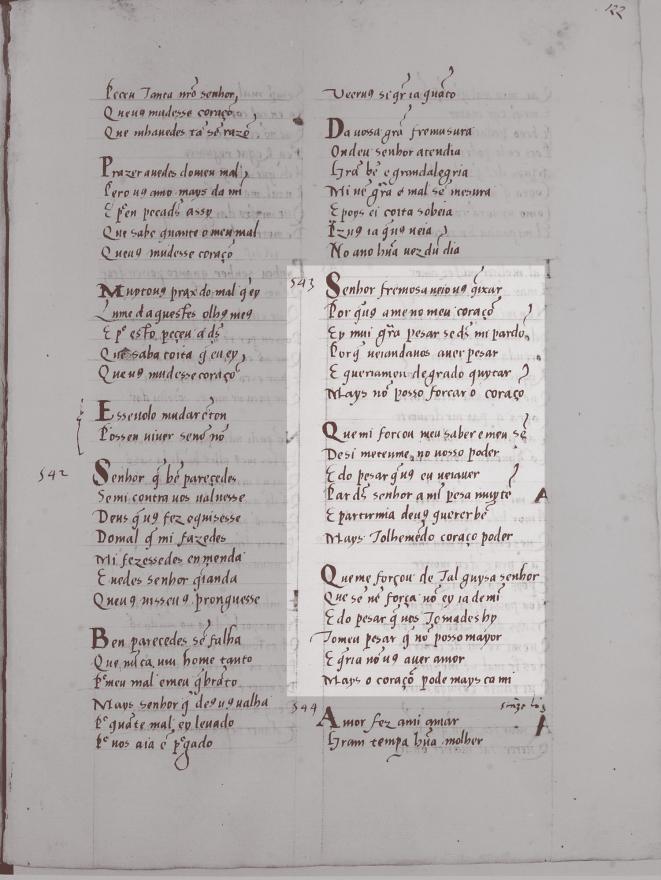 122
Peceu Tanta nr̃o senhor,
Que uꝯ mudesse coraçõ
Que mhauedes tã sẽ razõ
Prazer auedes domeu mal
Pero uꝯ amo mays ca mĩ
E pẽn pecads assy
Que sabe quante o meu mal
Queuꝯ mudesse coraçõ
Muytouꝯ praz do mal q̃ ey
Lume daquestes olhꝯ meꝯ
E pº esto peçeu a ds̃
Que saba coita q̃ eu ey
Que uꝯ mudesse coraçõ
E sseuolo mudar enton
Possen uiuer senõ nõ
542
Senhor q̃ bẽ pareçedes
Se mi contra uos ualuesse
Deus q̃ uꝯ fez e quisesse
Do mal q̃ mi fazedes
Mi fezessedes enmenda
E uedes senhor q̃ianda
Queuꝯ uisseuꝯ prouguesse
Ben parecedes sẽ falha
Que nũca uiu home tanto
Pº meu mal e meu q̃brãto
Mays senhor q̃ deꝯ uꝯ ualha
Pº quãte mal ey leuado
Pº uos aia ẽ pºgado
Veeruꝯ seq̃r ia quãto
Da uosa grã fremusura
Ondeu senhor atendia
Grã bẽ e grandalegria
Mi uẽ grã e mal sẽ mesura
E poys ei coita sobeia
Pzuꝯ ia q̃uꝯ ueia
No ano hũa uez dũ dia
543
Senhor fremosa ueiouꝯ q̃ixar
Por q̃uꝯ ame no meu coraçõ
Ey mui grã pesar se ds̃ mi pardõ
Porq̃ ueiandauos auer pesar
E queriamen degrado quytar
Mays nõ posso forcar o coraçõ
Que mi forcou meu saber e meu sẽ
Desi meteume no uosso poder
E do pesar q̃uꝯ eu ueiauer
Par ds̃ senhor a mĩ pesa muyte
E partirmia deuꝯ querer bẽ
Mays Tolhemẽdo coraço poder
Queme forçou de Tal guysa senhor
Que sẽ nẽ força nõ ey ia de mi
E do pesar q̃uos Tomades hy
Tomeu pesar q̃ nõ posso mayor
E q̃ria nõ uꝯ auer amor
Mays o coraçõ pode mays ca mi
544
Amor fez ami amar
Gram tempa hũa molher